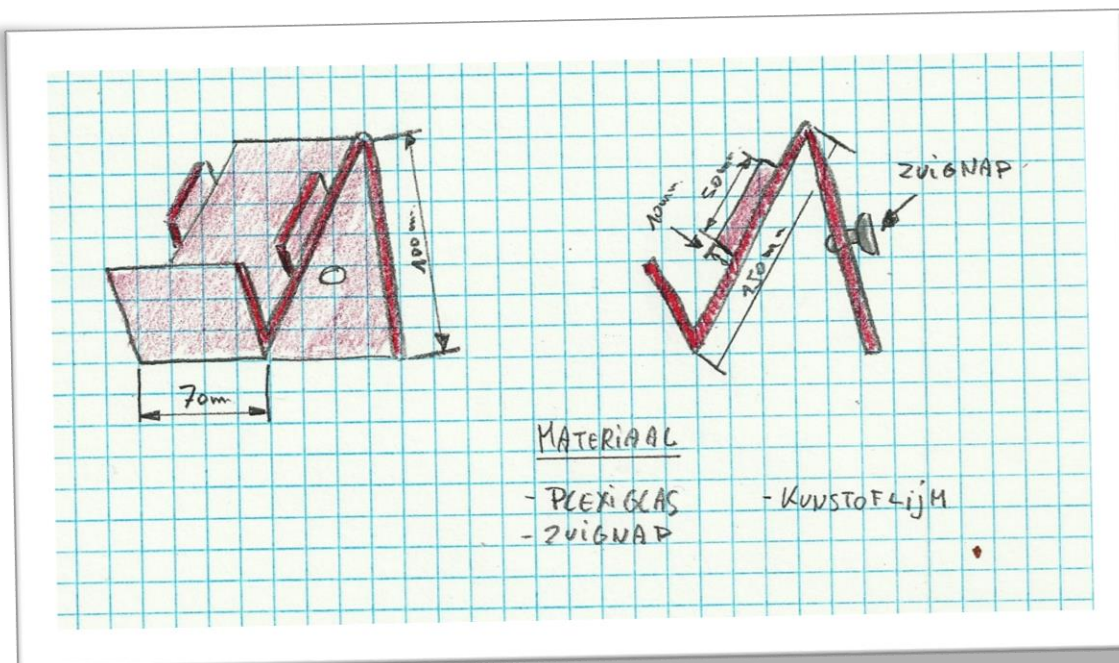 100mm
70mm
10mm
50mm
150mm
ZUIGNAP
MATERIAAL
- PLEXIGLAS
- ZUIGNAP
- KUNSTOFLIJM